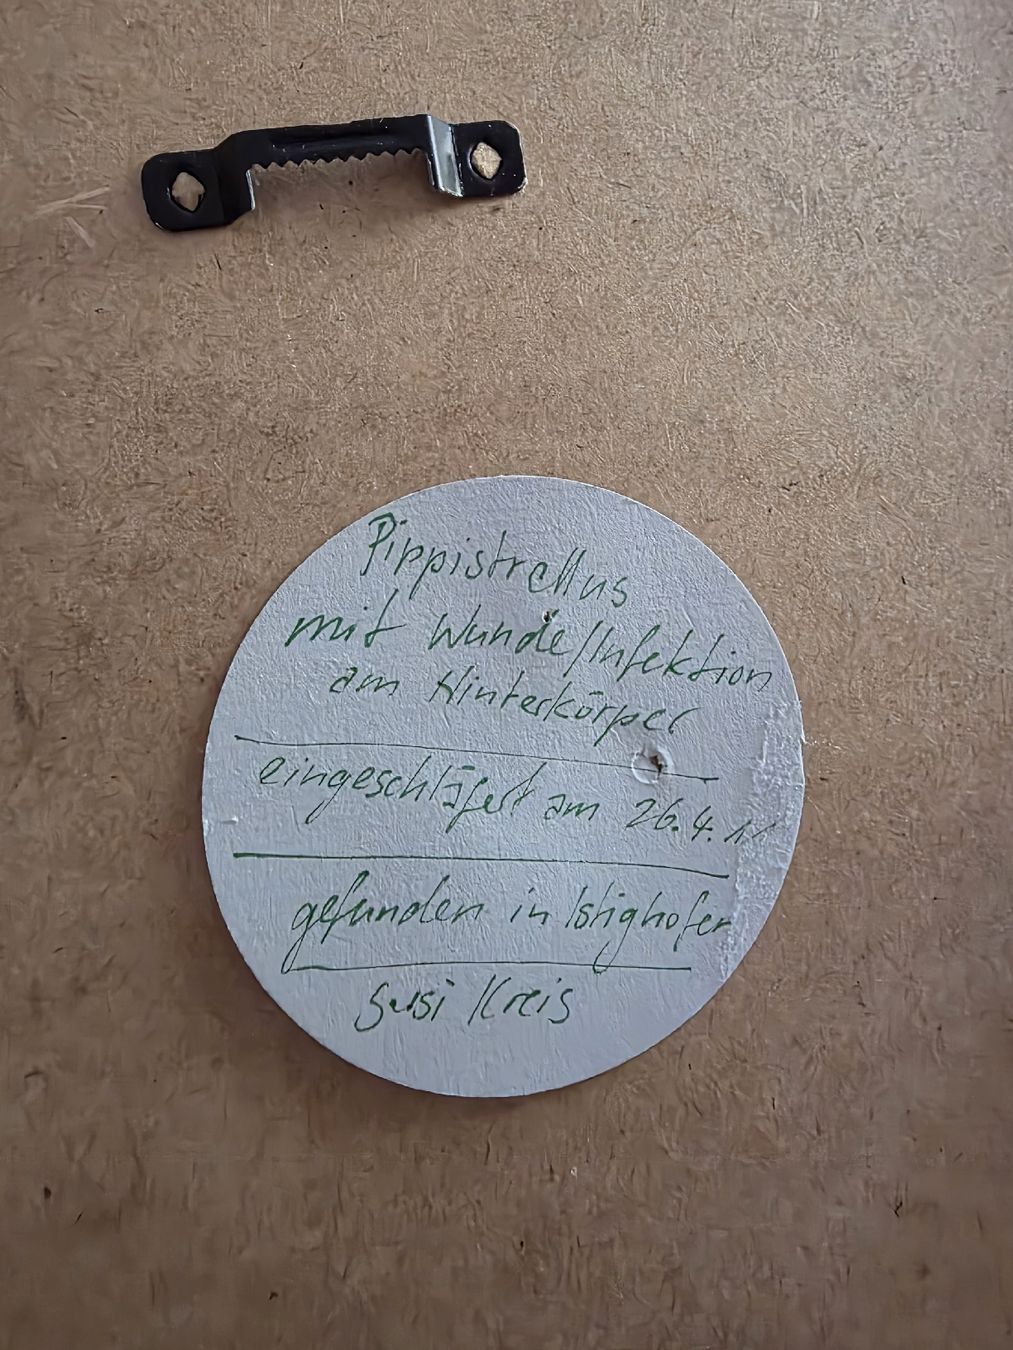 Pippistrellus
mit Wunde/Infektion
am Hinterkörper
eingeschläfert am 26.4.11
gefunden in Istighofen
Susi Kreis